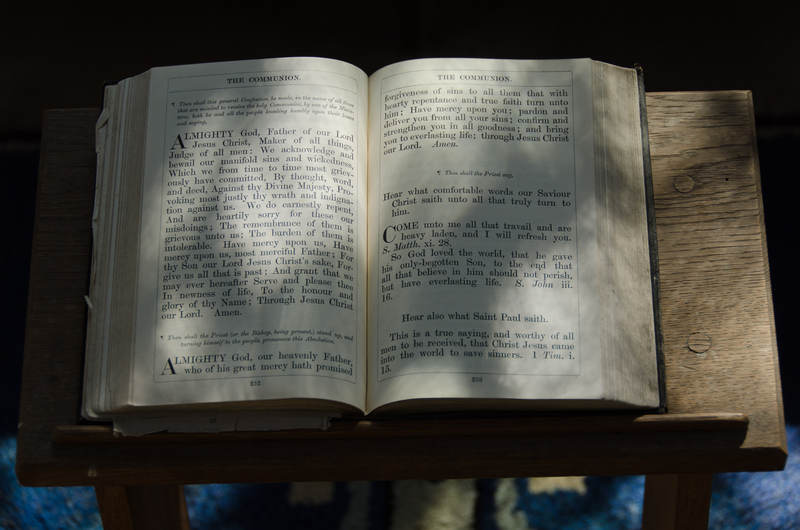 THE COMMUNION.
¶ Then shall this general Confession be made, in the name of all those
that are minded to receive the holy Communion, by one of the Minis-
ters; both he and all the people kneeling humbly upon their knees
and saying,
ALMIGHTY God, Father of our Lord
Jesus Christ, Maker of all things,
Judge of all men: We acknowledge and
bewail our manifold sins and wickedness,
Which we from time to time most griev-
ously have committed, By thought, word,
and deed, Against thy Divine Majesty, Pro-
voking most justly thy wrath and indigna-
tion against us. We do earnestly repent,
And are heartily sorry for these our
misdoings; The remembrance of them is
grievous unto us; The burden of them is
intolerable. Have mercy upon us, Have
mercy upon us, most merciful Father; For
thy Son our Lord Jesus Christ's sake, For-
give us all that is past; And grant that we
may ever hereafter Serve and please thee
In newness of life, To the honour and
glory of thy Name; Through Jesus Christ
our Lord. Amen.
¶ Then shall the Priest (or the Bishop, being present,) stand up, and
turning himself to the people, pronounce this Absolution.
ALMIGHTY God, our heavenly Father,
who of his great mercy hath promised
THE COMMUNION.
forgiveness of sins to all them that with
hearty repentance and true faith turn unto
him; Have mercy upon you; pardon and
deliver you from all your sins; confirm and
strengthen you in all goodness; and bring
you to everlasting life; through Jesus Christ
our Lord. Amen.
¶ Then shall the Priest say,
Hear what comfortable words our Saviour
Christ saith unto all that truly turn to
him.
COME unto me all that travail and are
heavy laden, and I will refresh you.
S. Matth. xi. 28.
So God loved the world, that he gave
his only-begotten Son, to the end that
all that believe in him should not perish,
but have everlasting life. S. John iii.
16.
Hear also what Saint Paul saith.
This is a true saying, and worthy of all
men to be received, that Christ Jesus came
into the world to save sinners. 1 Tim. i.
15.